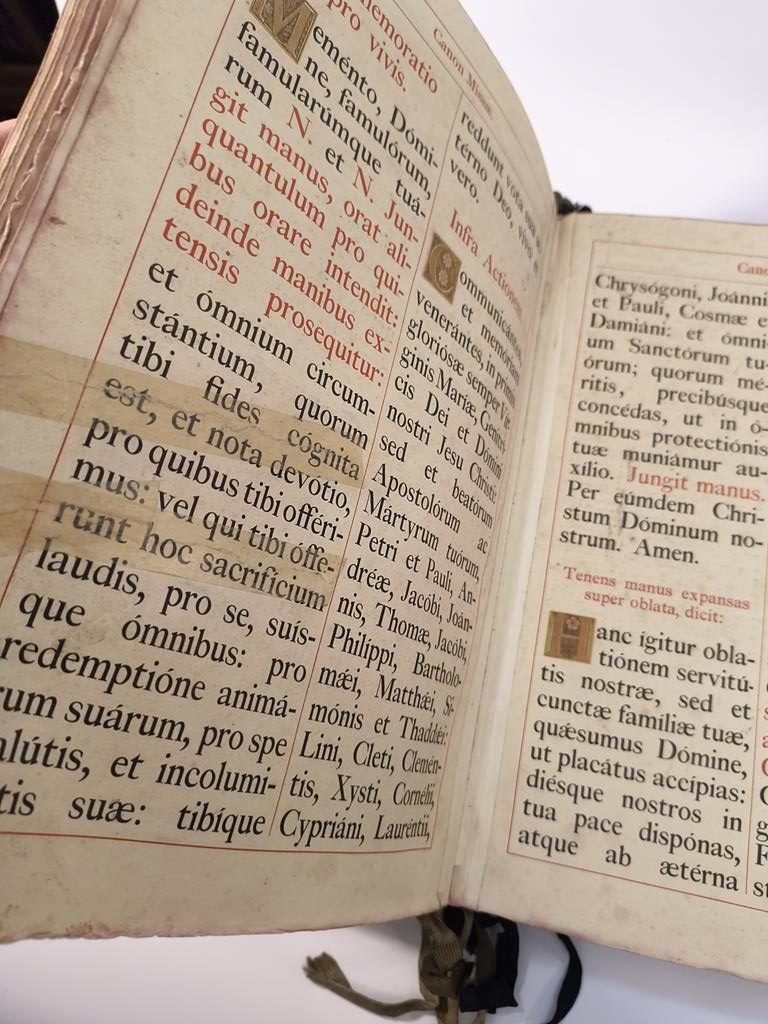 Commemoratio
pro vivis.
Meménto, Dómi-
ne, famulórum,
famularúmque tuá-
rum N. et N. Jun-
git manus, orat ali-
quantulum pro qui-
bus orare intendit:
deinde manibus ex-
tensis prosequitur:
et ómnium circum-
stántium, quorum
tibi fides cógnita
est, et nota devótio,
pro quibus tibi offéri-
mus: vel qui tibi óffe-
runt hoc sacrifícium
laudis, pro se, suís-
que ómnibus: pro
redemptióne animá-
rum suárum, pro spe
salútis, et incolumi-
tis suæ: tibíque
Canon Missæ.
reddunt vota sua æ-
térno Deo, vivo et
vero.
Infra Actionem.
Communicántes,
et memóriam
venerántes, in primis
gloriósæ semper Vír-
ginis Maríæ, Genitrí-
cis Dei et Dómini
nostri Jesu Christi:
sed et beatórum
Apostolórum ac
Mártyrum tuórum,
Petri et Pauli, An-
dréæ, Jacóbi, Joán-
nis, Thomæ, Jacóbi,
Philíppi, Bartholo-
mǽi, Matthǽi, Si-
mónis et Thaddǽi:
Lini, Cleti, Clemén-
tis, Xysti, Cornélii,
Cypriáni, Lauréntii,
Chrysógoni, Joánni
et Pauli, Cosmæ e
Damiáni: et ómni-
um Sanctórum tu-
órum; quorum mé-
ritis, precibúsque
concédas, ut in ó-
mnibus protectiónis
tuæ muniámur au-
xílio. Jungit manus.
Per eúmdem Chri-
stum Dóminum no-
strum. Amen.
Tenens manus expansas
super oblata, dicit:
Hanc ígitur obla-
tiónem servitú-
tis nostræ, sed et
cunctæ famíliæ tuæ,
quǽsumus Dómine,
ut placátus accípias:
diésque nostros in
tua pace dispónas,
atque ab ætérna